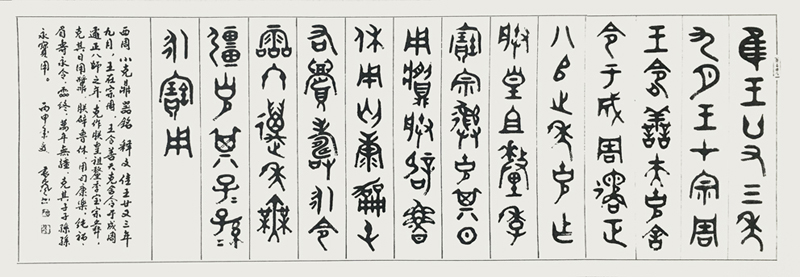 隹王廿又三年
九月王才宗周
王令善夫克舍
令于成周遹正
八𠂤之年克乍
朕皇且釐季
寶宗彝克其日
用䵼朕辟魯
休用匄康屯
右眉壽永令
霝冬萬年無
彊克其子=孫=
永寶用
西周小克鼎器銘 釋文 隹王廿又三年
九月,王在宗周,王令善夫克舍令于成周
遹正八師之年,克作朕皇祖釐季寶宗彝,
克其日用䵼,朕辟魯休,用匄康樂,純祐,
眉壽永令,霝終,萬年無疆,克其子子孫孫
永寶用。 丙申年夏